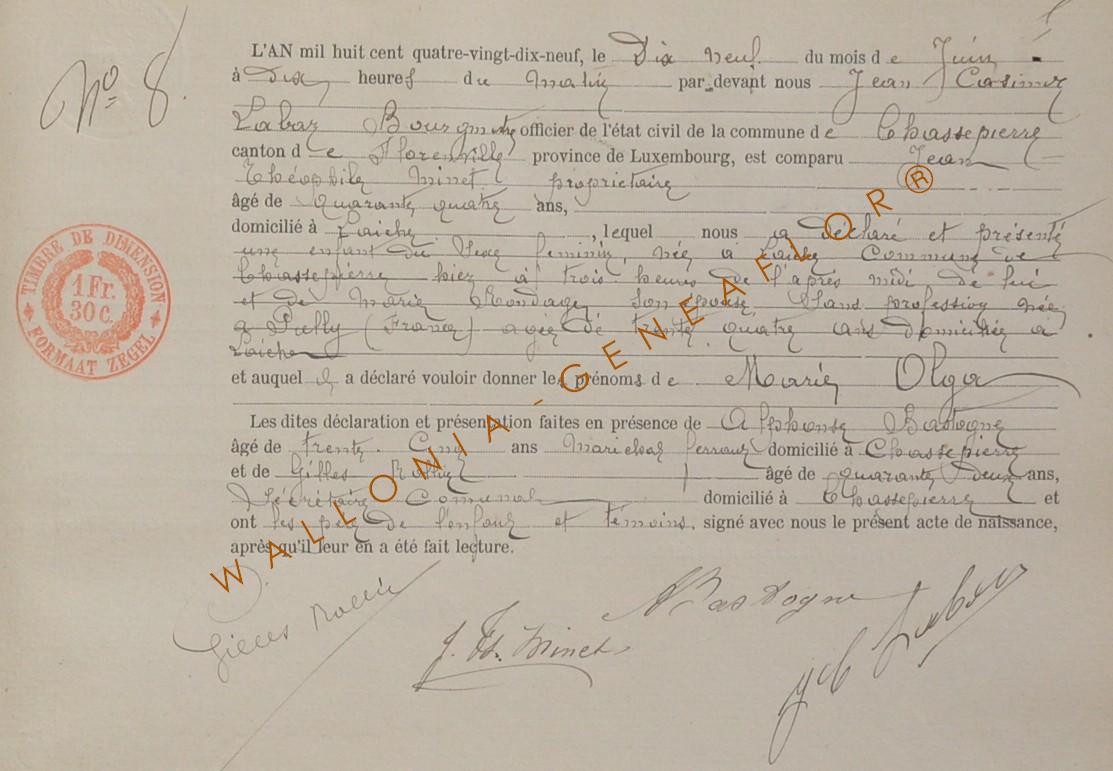 No 8.
L'AN mil huit cent quatre-vingt-dix-neuf, le Dix neuf du mois de Juin
à Dix heures du matin par devant nous Jean Casimir
Labar Bourgmestre officier de l'état civil de la commune de Chassepierre
canton de Florenville province de Luxembourg, est comparu Jean
Théophile Minet proprietaire
âgé de Quarante quatre ans,
domicilié à Laiche, lequel nous a déclaré et présenté
une enfant du sexe feminin, née à Laiche Commune de
Chassepierre hier à trois heures de l'après midi de lui
et de Marie Rondage, son épouse, sans profession née
à Puilly (France) agée de trente quatre ans domiciliée à
Laiche
et auquel il a déclaré vouloir donner les prénoms de Marie Olga
Les dites déclaration et présentation faites en présence de Alphonse Bastogne
âgé de trente Cinq ans Marichal ferrant domicilié à Chassepierre
et de Gilles Rollin âgé de quarante Deux ans,
Sécrétaire Communal domicilié à Chassepierre et
ont les père de l'enfant et témoins, signé avec nous le présent acte de naissance,
après qu'il leur en a été fait lecture.
TIMBRE DE DIMENSION
1 Fr.
30 C.
FORMAAT ZEGEL
WALLONIA-GENEAFLOR®
A Bastogne
Gilles Rollin
J. Th. Minet